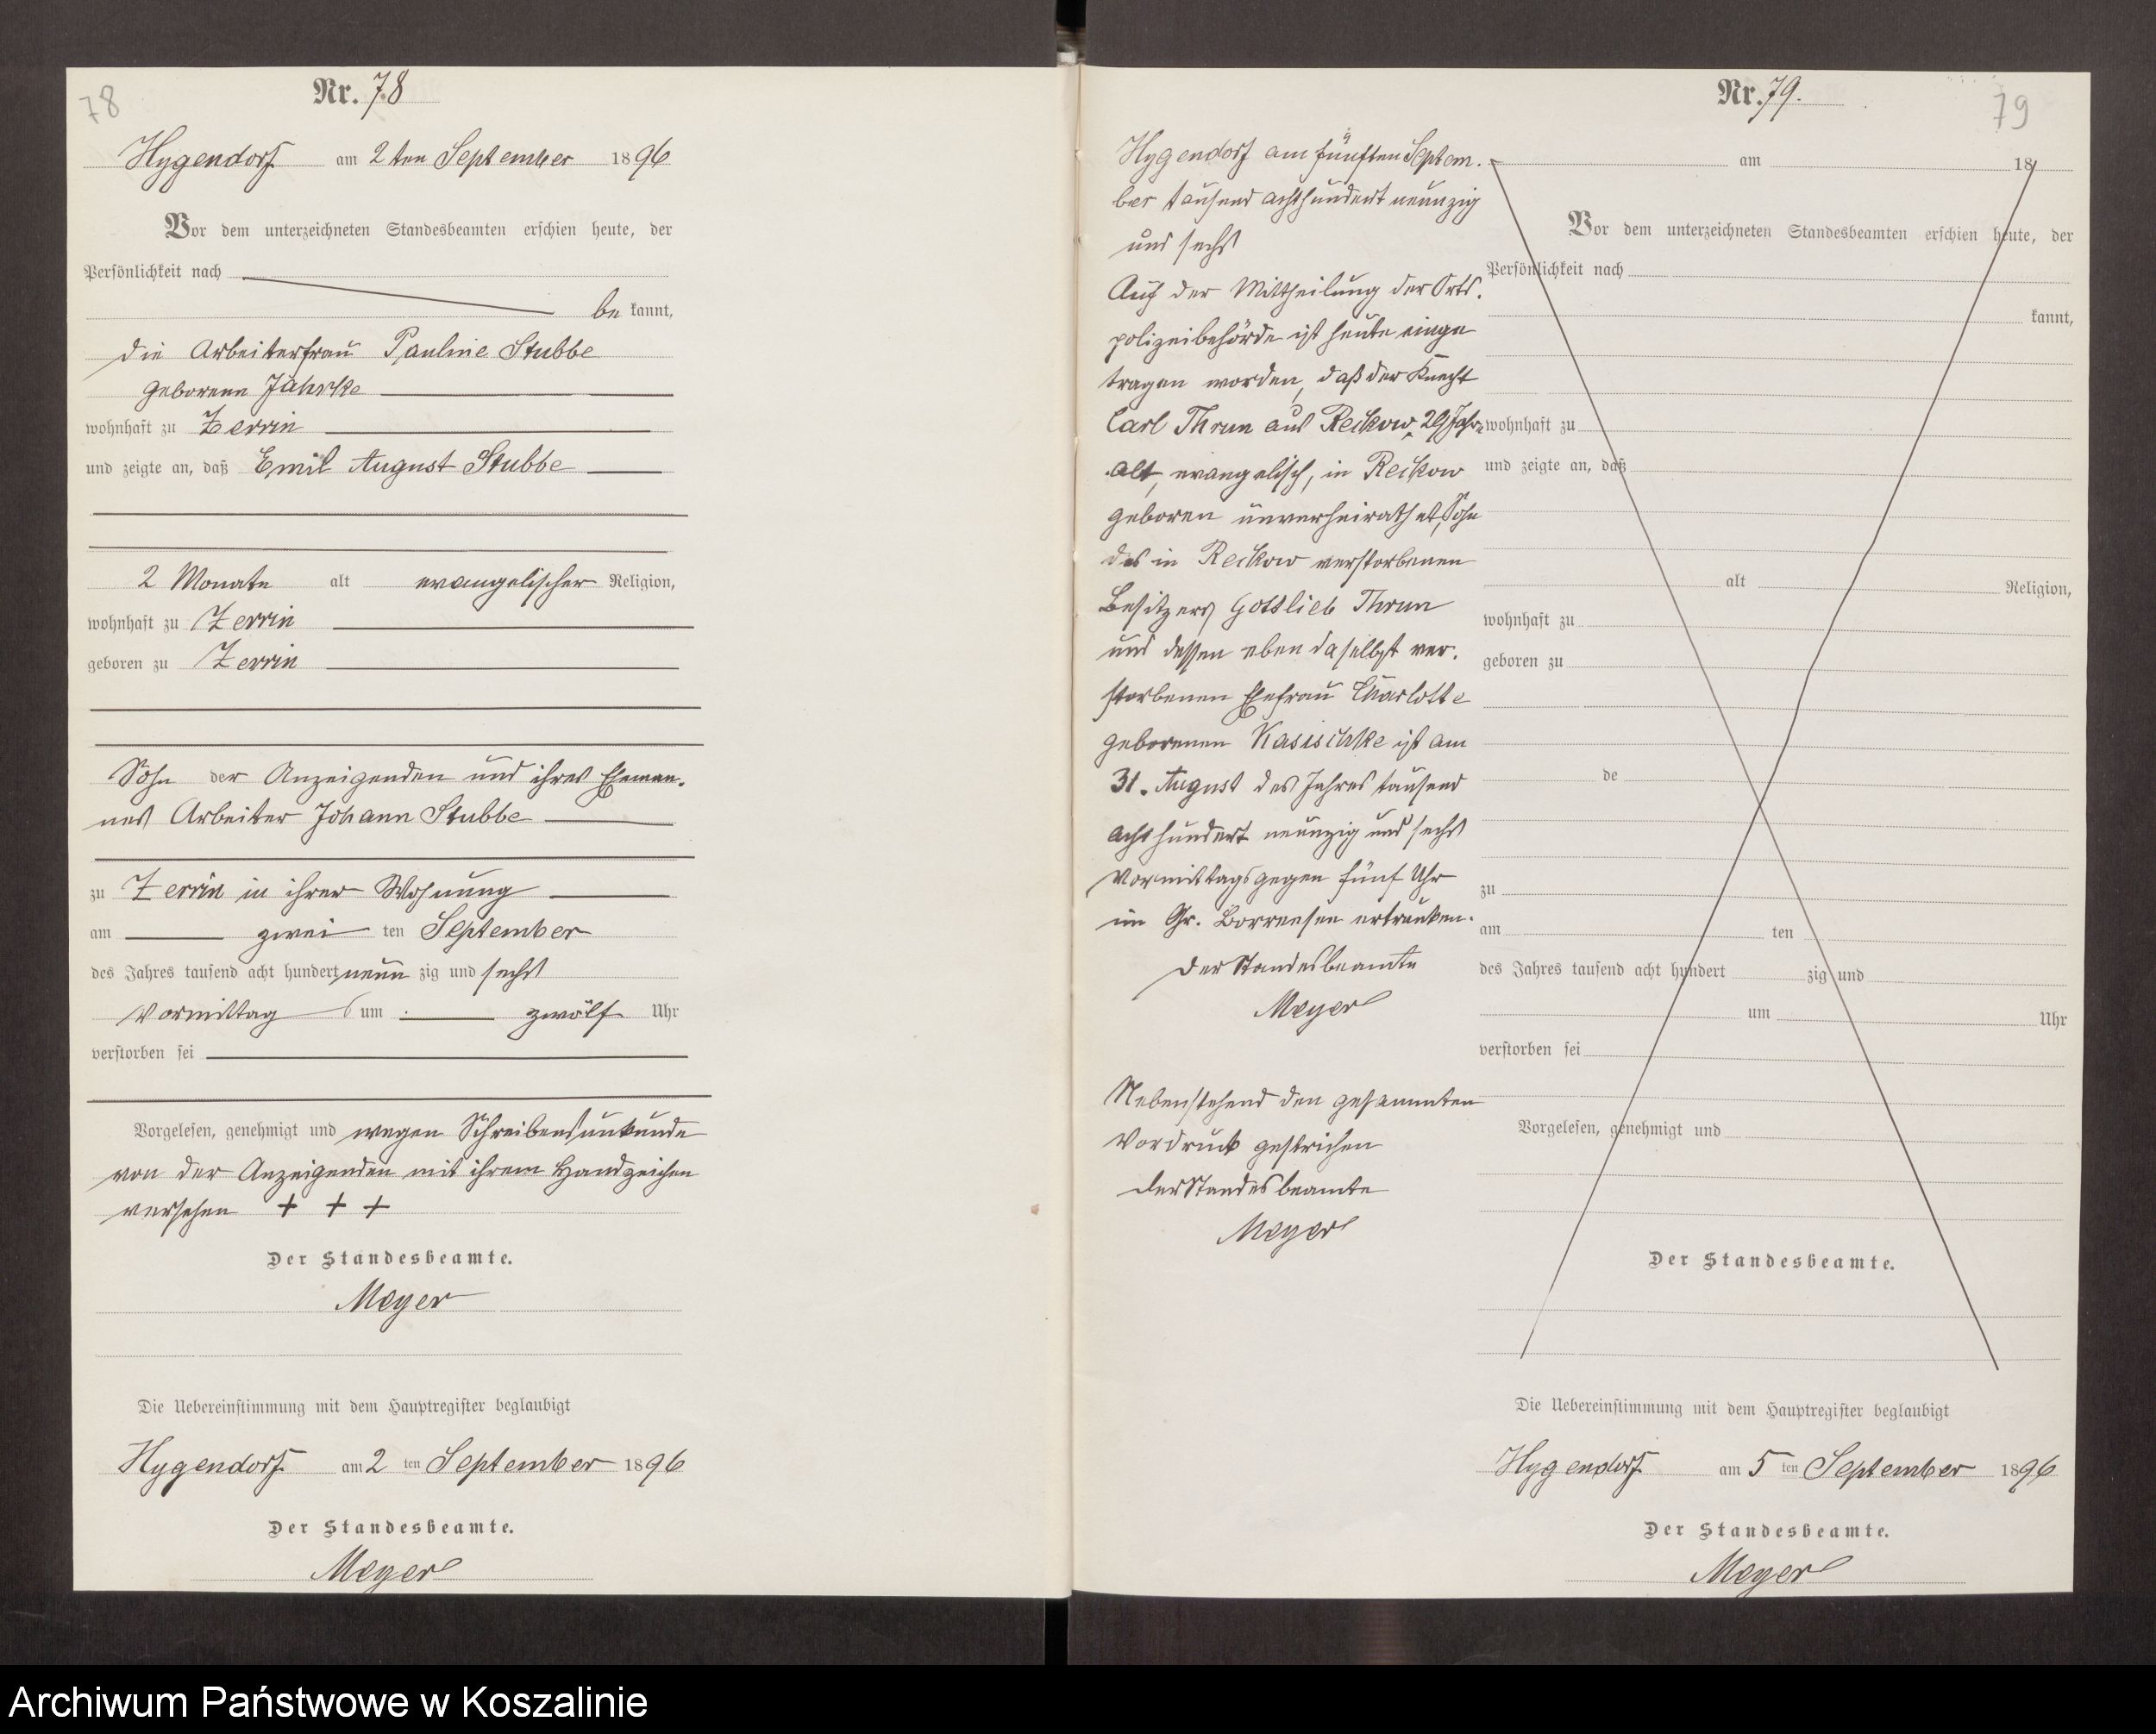 78
Nr. 78
Hygendorf am 2ten September 1896
Vor dem unterzeichneten Standesbeamten erschien heute, der
Persönlichkeit nach
be kannt,
die Arbeiterfrau Pauline Stubbe
geborene Jahnke
wohnhaft zu Zerrin
und zeigte an, daß Emil August Stubbe
2 Monate alt evangelischer Religion,
wohnhaft zu Zerrin
geboren zu Zerrin
Sohn der Anzeigenden und ihres Eheman-
nes Arbeiter Johann Stubbe
zu Zerrin in ihrer Wohnung
am zwei ten September
des Jahres tausend acht hundert neun zig und sechs
Vormittag s um zwölf Uhr
verstorben sei
Vorgelesen, genehmigt und wegen Schreibensunkunde
von der Anzeigenden mit ihrem Handzeichen
versehen + + +
Der Standesbeamte.
Meyer
Die Uebereinstimmung mit dem Hauptregister beglaubigt
Hygendorf am 2 ten September 1896
Der Standesbeamte.
Meyer
Nr. 79.
79
Hygendorf am fünften Septem-
ber tausend achthundert neunzig
und sechs
Auf der Mittheilung der Orts-
polizeibehörde ist heute einge
tragen worden, daß der Knecht
Carl Thrun aus Reckow, 29 Jahre
alt, evangelisch, in Reckow
geboren unverheirathet, Sohn
des in Reckow verstorbenen
Besitzers Gottlieb Thrun
und dessen ebendaselbst ver-
storbenen Ehefrau Charlotte
geborenen Kasischke ist am
31. August des Jahres tausend
acht hundert neunzig und sechs
Vormittags gegen fünf Uhr
im Gr. Borrensee ertrunken.
Der Standesbeamte
Meyer
Nebenstehend den gesammten
Vordruck gestrichen
Der Standesbeamte
Meyer
am 18
Vor dem unterzeichneten Standesbeamten erschien heute, der
Persönlichkeit nach
kannt,
wohnhaft zu
und zeigte an, daß
alt Religion,
wohnhaft zu
geboren zu
de
zu
am ten
des Jahres tausend acht hundert zig und
um Uhr
verstorben sei
Vorgelesen, genehmigt und
Der Standesbeamte.
Die Uebereinstimmung mit dem Hauptregister beglaubigt
Hygendorf am 5 ten September 1896
Der Standesbeamte.
Meyer
Archiwum Państwowe w Koszalinie